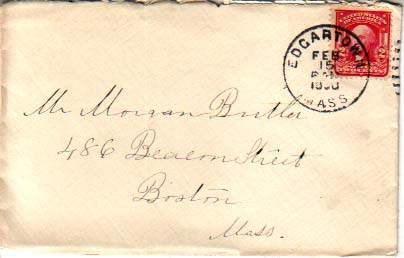 EDGARTOWN
FEB
15
MASS
Mr Morgan Butler
486 Beacon Street
Boston
Mass.